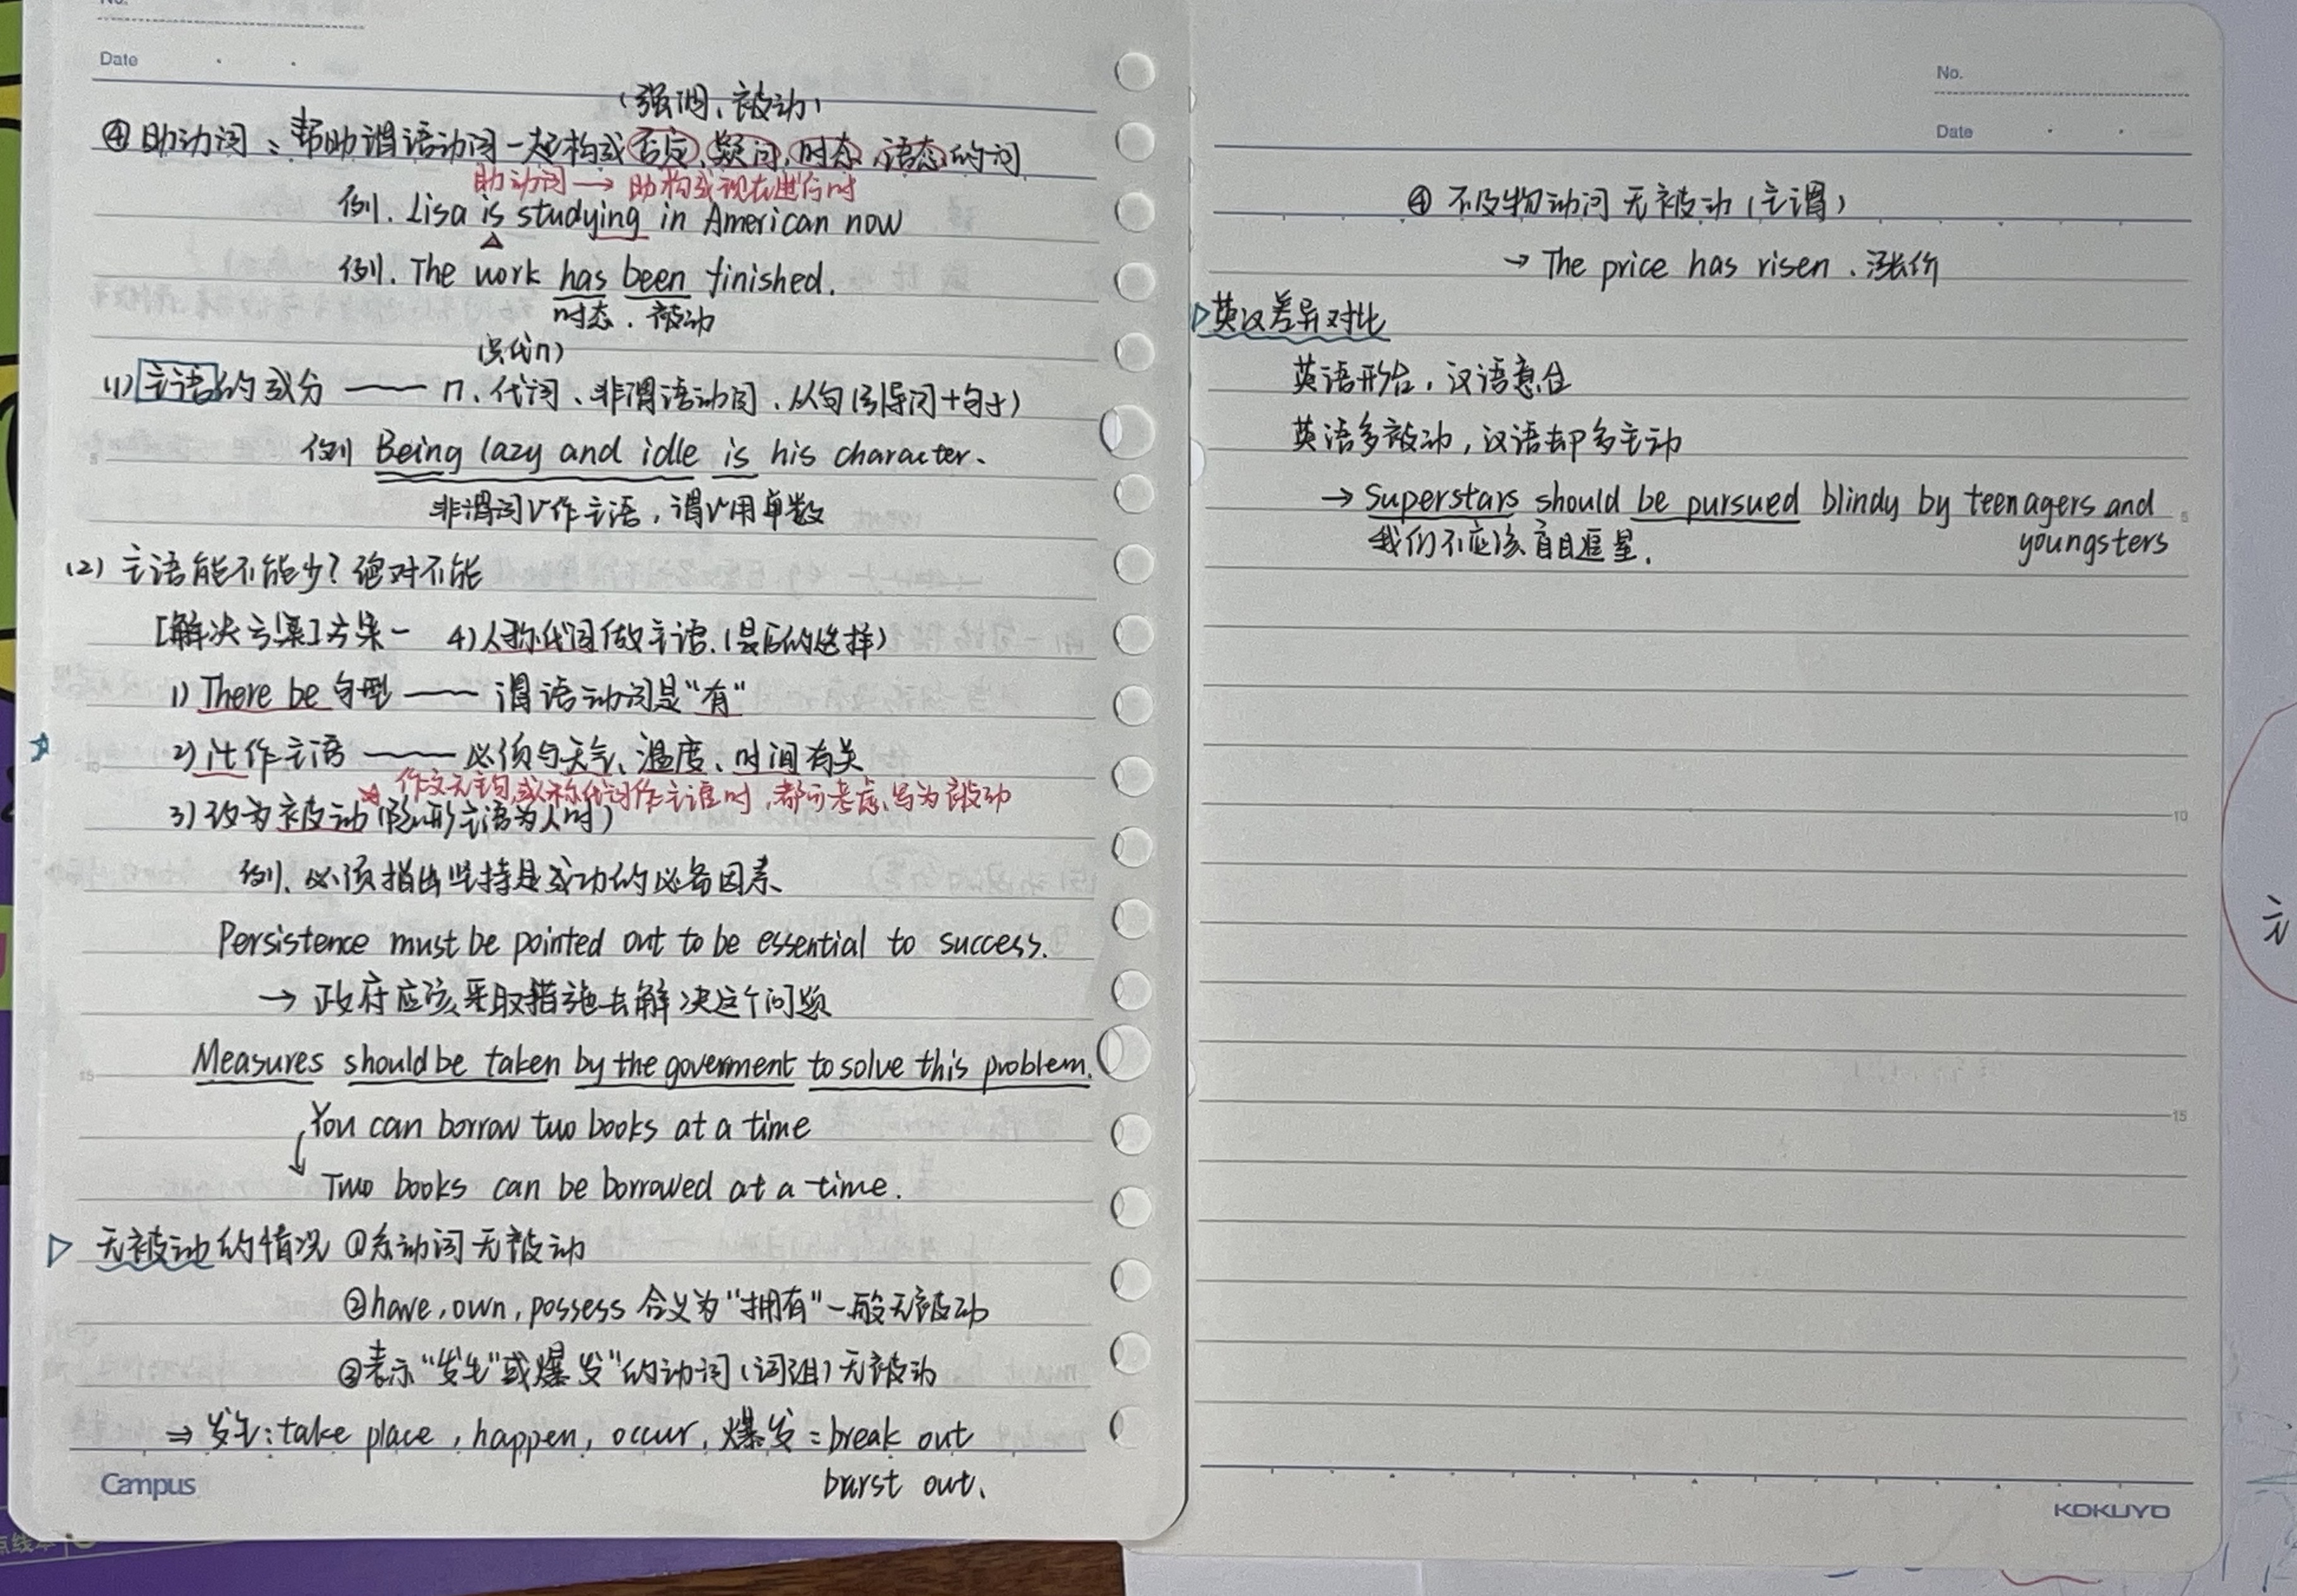 No.
Date
(强调、被动)
④ 助动词：帮助谓语动词一起构成否定、疑问、时态、语态的词
助动词 → 助构成现在进行时
例. Lisa is studying in American now
例. The work has been finished.
时态. 被动
(1) 主语的成分 —— n、代词、非谓语动词、从句(引导词+句子)
例 Being lazy and idle is his character.
非谓词V作主语，谓V用单数
(2) 主语能不能少？绝对不能
[解决方案]方案一 4)人称代词做主语.(最后的选择)
1) There be 句型 —— 谓语动词是"有"
2) it作主语 —— 必须与天气、温度、时间有关
作文无主句,或人称代词作主语时,都可考虑写为被动
3) 改为被动(隐形主语为人时)
例. 必须指出坚持是成功的必备因素.
Persistence must be pointed out to be essential to success.
→ 政府应该采取措施去解决这个问题
Measures should be taken by the goverment to solve this problem.
You can borrow two books at a time
Two books can be borrowed at a time.
无被动的情况 ①系动词无被动
②have, own, possess 含义为"拥有"一般无被动
③表示"发生"或爆发"的动词(词组)无被动
⇒ 发生: take place, happen, occur, 爆发: break out
burst out.
Campus
No.
Date
④ 不及物动词 无被动(主谓)
→ The price has risen. 涨价
英汉差异对比
英语形合，汉语意合
英语多被动，汉语却多主动
→ Superstars should be pursued blindy by teenagers and
youngsters
我们不应该盲目追星.
5
10
15
KOKUYO